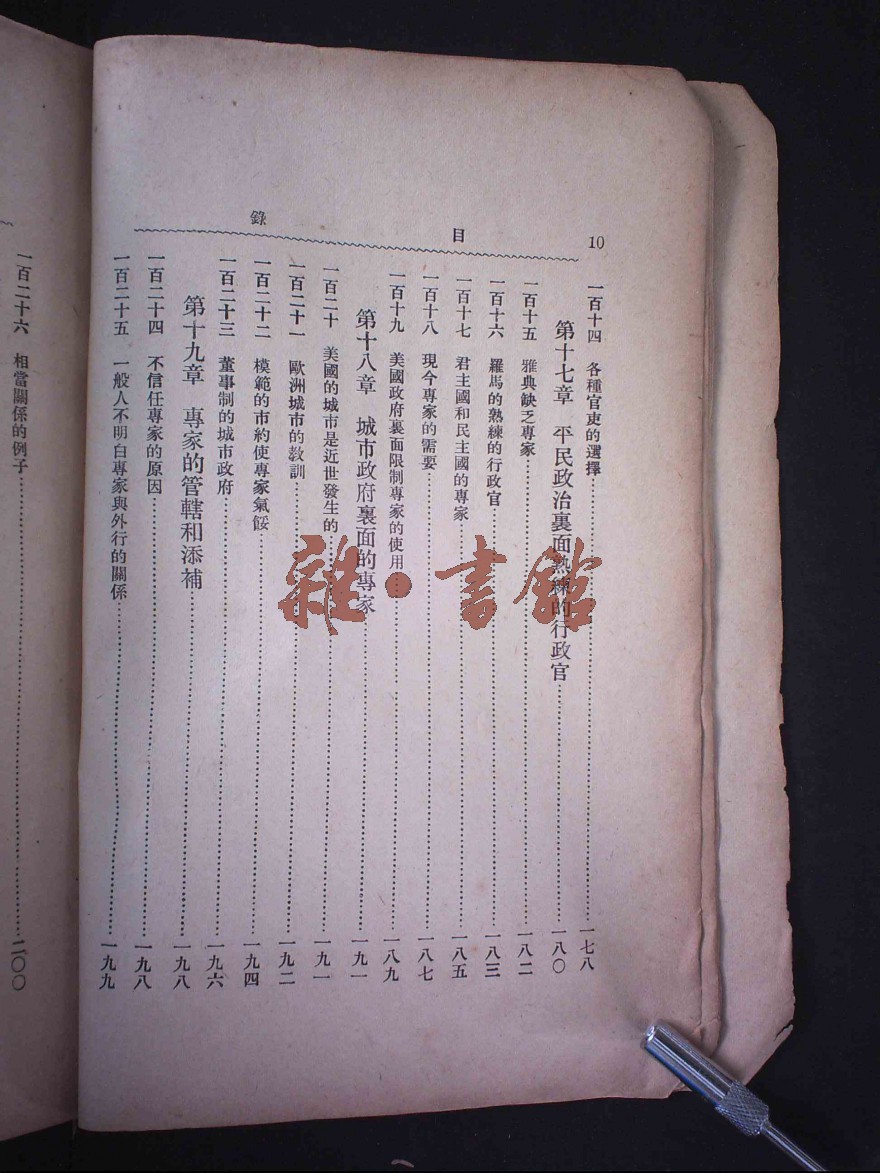 10
目錄
一百十四 各種官吏的選擇……一七八
第十七章 平民政治裏面熟練的行政官……一八〇
一百十五 雅典缺乏專家……一八二
一百十六 羅馬的熟練的行政官……一八三
一百十七 君主國和民主國的專家……一八五
一百十八 現今專家的需要……一八七
一百十九 美國政府裏面限制專家的使用……一八九
第十八章 城市政府裏面的專家……一九一
一百二十 美國的城市是近世發生的……一九一
一百二十一 歐洲城市的教訓……一九二
一百二十二 模範的市約使專家氣餒……一九四
一百二十三 董事制的城市政府……一九六
第十九章 專家的管轄和添補……一九八
一百二十四 不信任專家的原因……一九八
一百二十五 一般人不明白專家與外行的關係……一九九
一百二十六 相當關係的例子……二〇〇
雜·書館